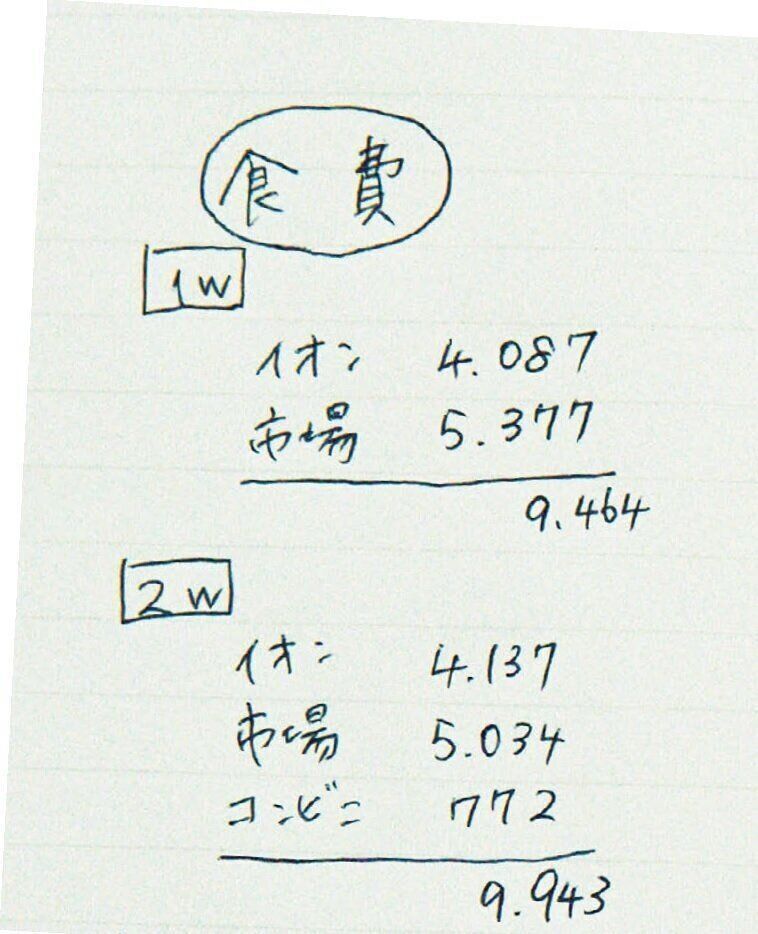 食費
1W
イオン 4.087
市場 5.377
9.464
2W
イオン 4.137
市場 5.034
コンビニ 772
9.943